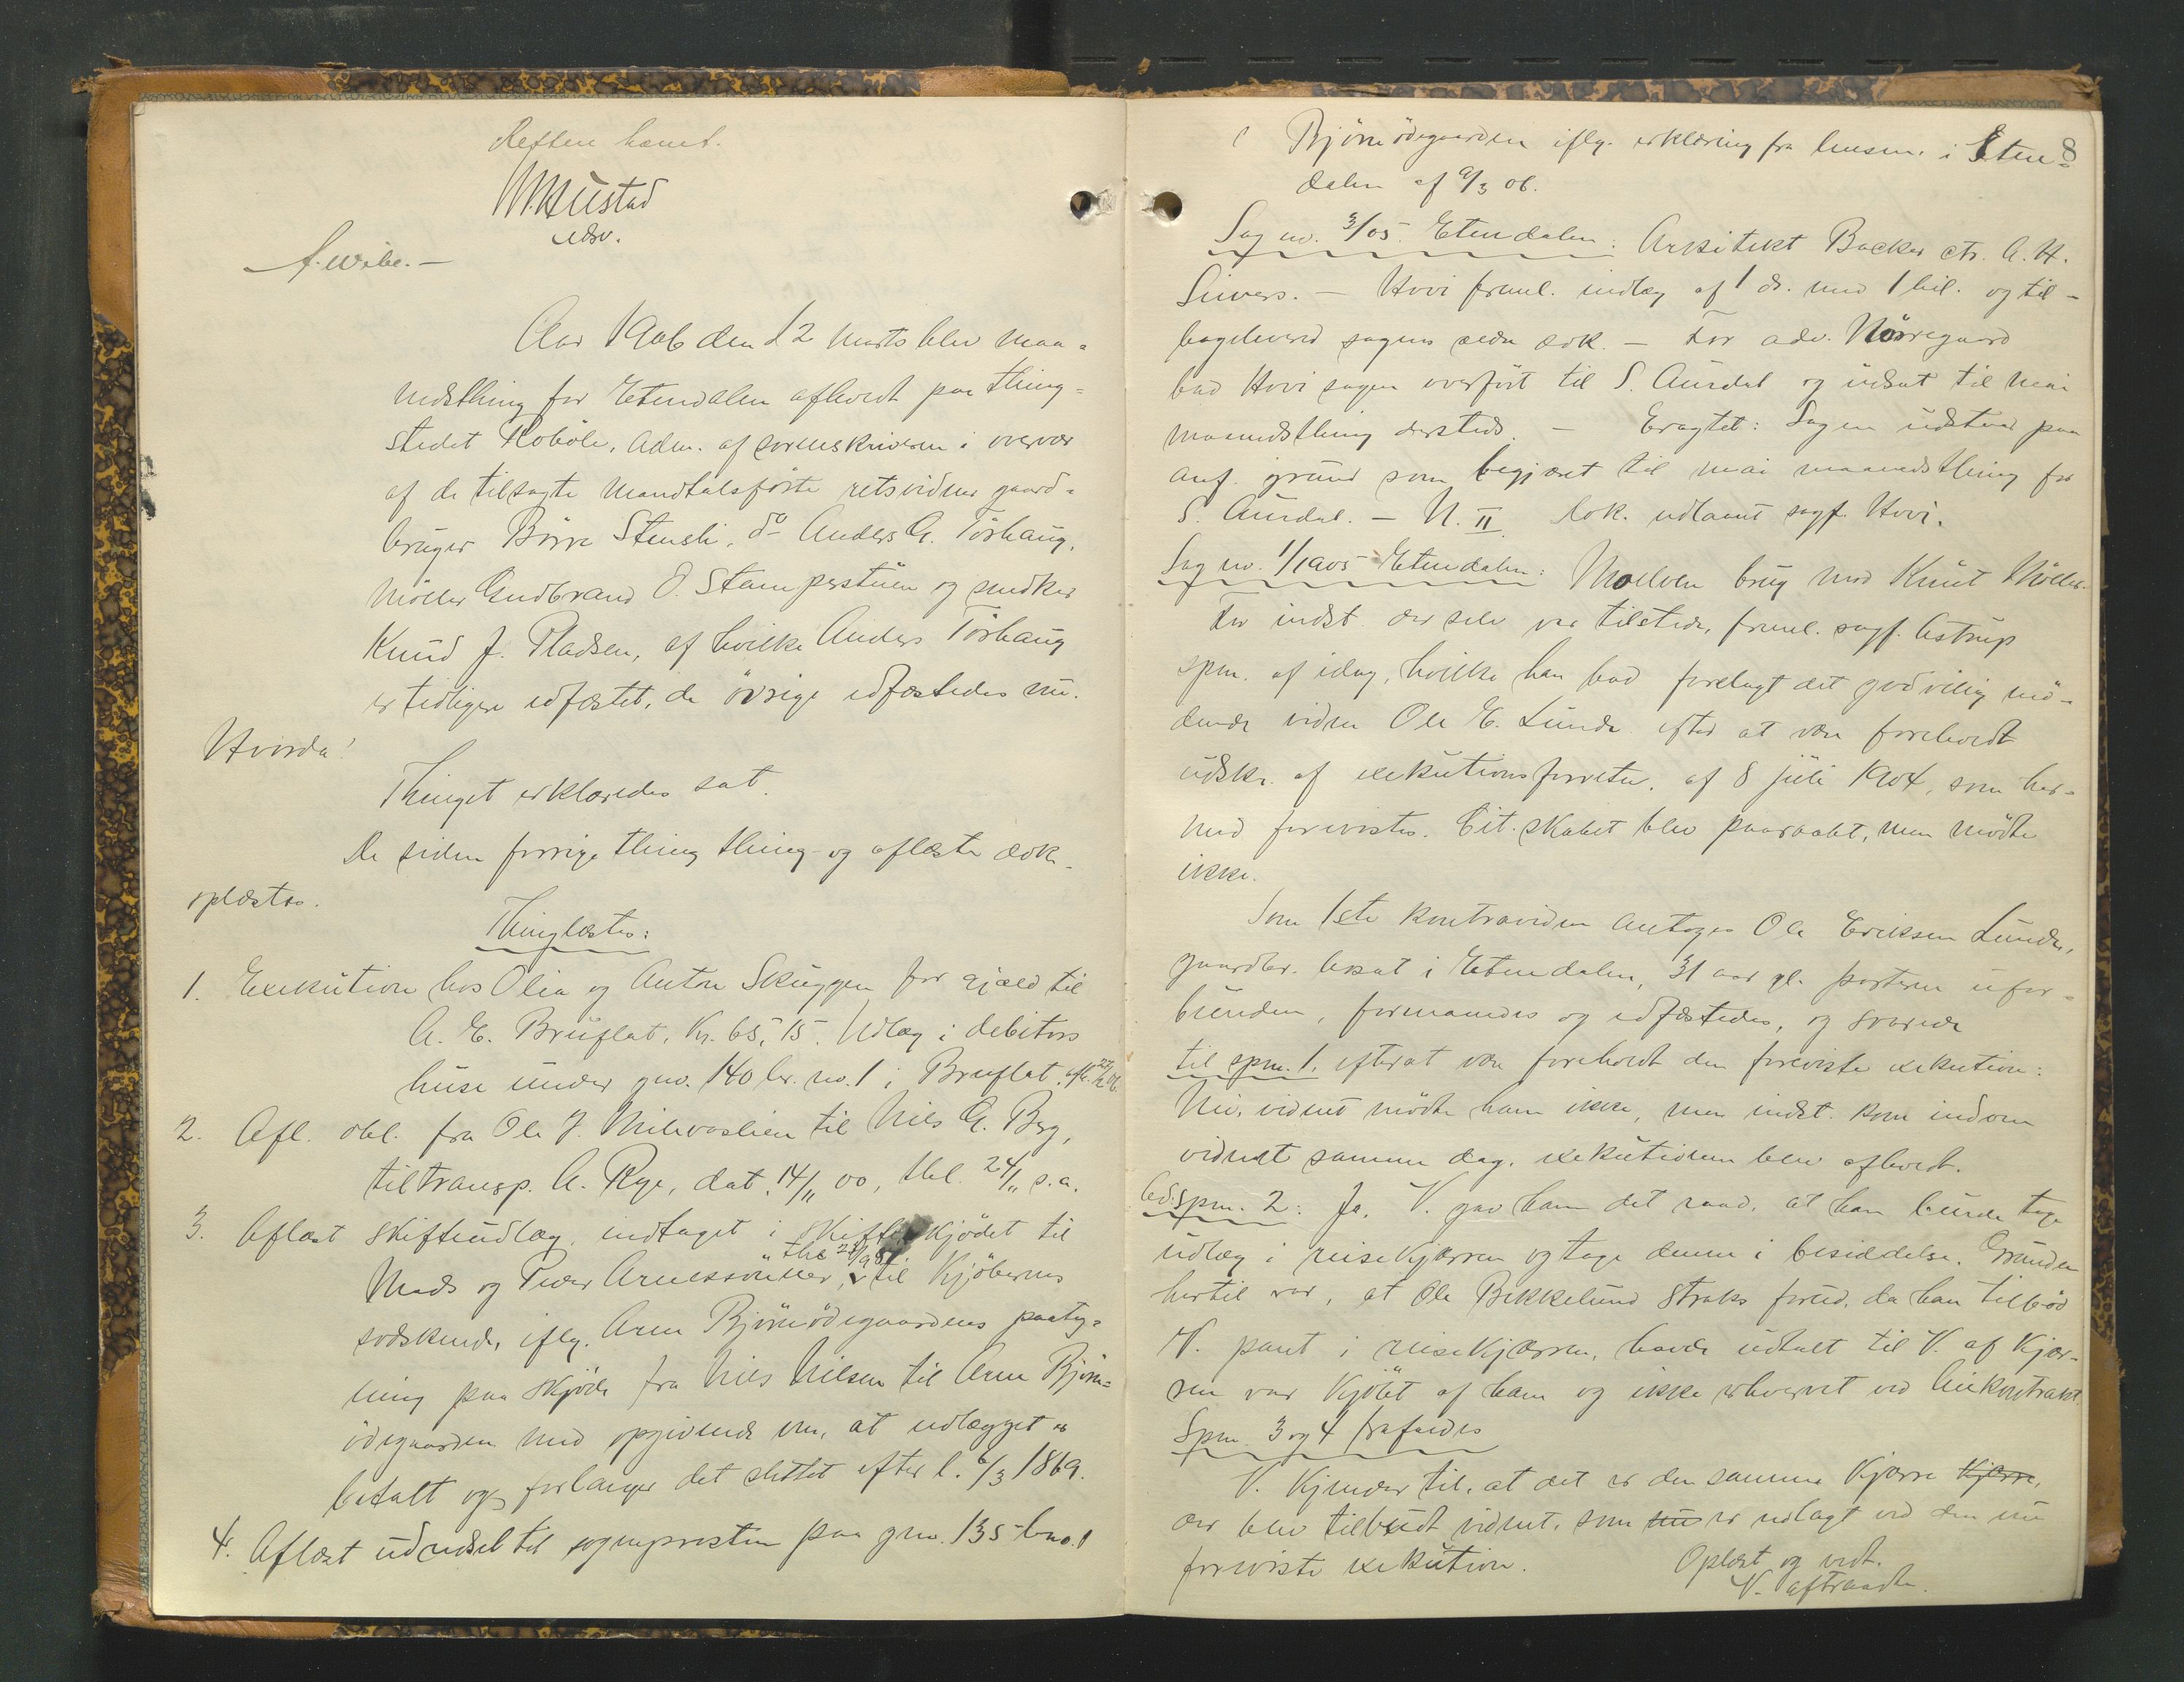 Retten hævet.
M. Hustad
edsv.
A. Wibe. —
Aar 1906 den 12 marts blev maa-
nedsthing for Etnedalen afholdt paa thing-
stedet Robøle, adm. af sorenskriveren i overvær
af de tilsagte mandtalsførte retsvidner gaard-
bruger Børre Stensli, do Anders G. Tørhaug,
møller Gudbrand O. Stampestuen og snedker
Knud J. Pladsen, af hvilke Anders Tørhaug
er tidligere edfæstet, de øvrige edfæstedes nu.
Hvorda!
Thinget erklæredes sat.
De siden forrige thing thing- og aflæste dok.
oplæstes.
Thinglæstes:
1. Exekution hos Olia og Anton Skuggen for gjæld til
A. E. Bruflat, Kr. 65,15. Udlæg i debitors
huse under gno. 140 br. no. 1 i Bruflat, afh. 22/2 06.
2. Afl. obl. fra Ole J. til Nils G. Berg,
tiltransp. A. Rye, dat. 14/11 00, thl. 24/11 s.a.
3. Aflæst skifteudlæg, indtaget i skifteskjødet til
Mads og Peder Arnessønner, thl. til Kjøbernes
sødskende, iflg. Arne Bjørnødegaardens paateg-
ning paa skjøde fra Nils Nilsen til Arne Bjørn-
ødegaarden med opgivende om, at udlægget er
betalt og forlanges det slettet efter l. 6/3 1869.
4. Aflæst udvidsel til sognepresten paa gno. 135 bno. 1
8
i Bjørnødegaarden iflg. erklæring fra lensm. i Etne-
dalen af 9/3 06.
Sag no. 3/05 Etnedalen: Arkitekt Backer ctr. A. H.
Sivers. — Hovi freml. indlæg af 1 ds. med 1 bil. og til-
bageleverd sagens æde dok. — For adv. Nørregaard
bad Hovi sagen overført til S. Aurdal og udsat til mai
maanedsthing dersteds. — Eragtet: Sagen udstaar paa
anf. grund som begjæret til mai maanedsthing for
S. Aurdal. — N. II. Dok. udlaant sagf. Hovi.
Sag no. 1/1905 Etnedalen: Moelven brug mod Knut Møller.
For indst. der selv var tilstede, freml. sagf. Astrup
spm. af idag, hvilke han bad forelagt det godvillig mø-
dende vidne Ole E. Lunde efter at være foreholdt
udskr. af exekutionsforretn. af 8 juli 1904, som her-
med forevistes. Cit.skabet blev paaraabt, men mødte
ikke.
Som 1ste kontravidne antoges Ole Eriksen Lunde,
gaardbr. bosat i Etnedalen, 31 aar gl. parterne ufor-
bunden, formanedes og edfæstedes, og svarede
til spm. 1, efterat være foreholdt den foreviste exekution:
Nei, vidnet mødte ham ikke, men indst. kom indom
vidnet samme dag, exekutionen blev afholdt.
ad. spm. 2: Ja. V. gav ham det raad, at han burde tage
udlæg i reisekjærren og tage denne i besiddelse. Grunden
hertil var, at Ole Bekkelund straks forud, da han tilbød
V. pant i reisekjærren, havde udtalt til V. af Kjær-
ren var kjøbt af ham og ikke erhvervet ved leiekontrakt.
Spm. 3 og 4 frafaldes
V. kjender til, at det er den samme kjærre kjærre,
der blev tilbudt vidnet, som nu er udlagt ved den nu
foreviste exekution.
Oplæst og vedt.
V. aftraadte.